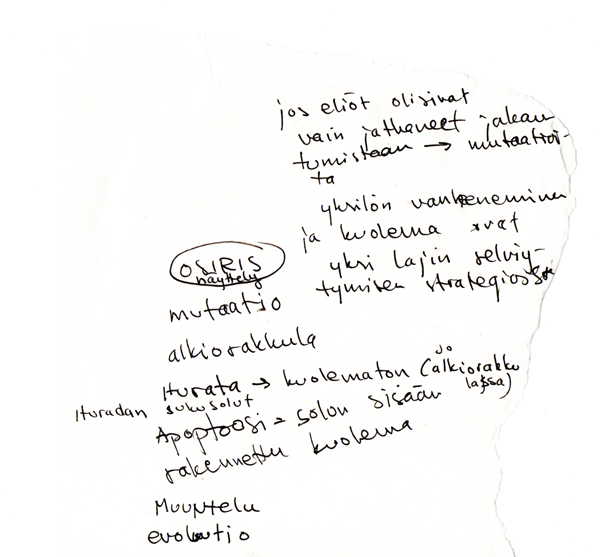 jos eliöt olisivat
vain jatkaneet jakau
tumistaan → mutaatioi-
ta
yksilön vanheneminen
ja kuolema ovat
yksi lajin selviy-
tymisen strategioista
OSIRIS
näyttely
mutaatio
alkiorakkula
Iturata → kuolematon (jo alkiorakku
lassa)
Ituradan sukusolut
Apoptoosi = solun sisään
rakennettu kuolema
Muuntelu
evoluutio